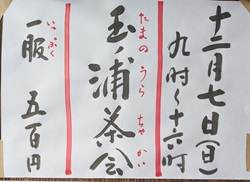 十二月七日(日)
九时〜十六时
玉ノ浦茶会
たまの うら ちゃ かい
一服 五百円
いっぷく